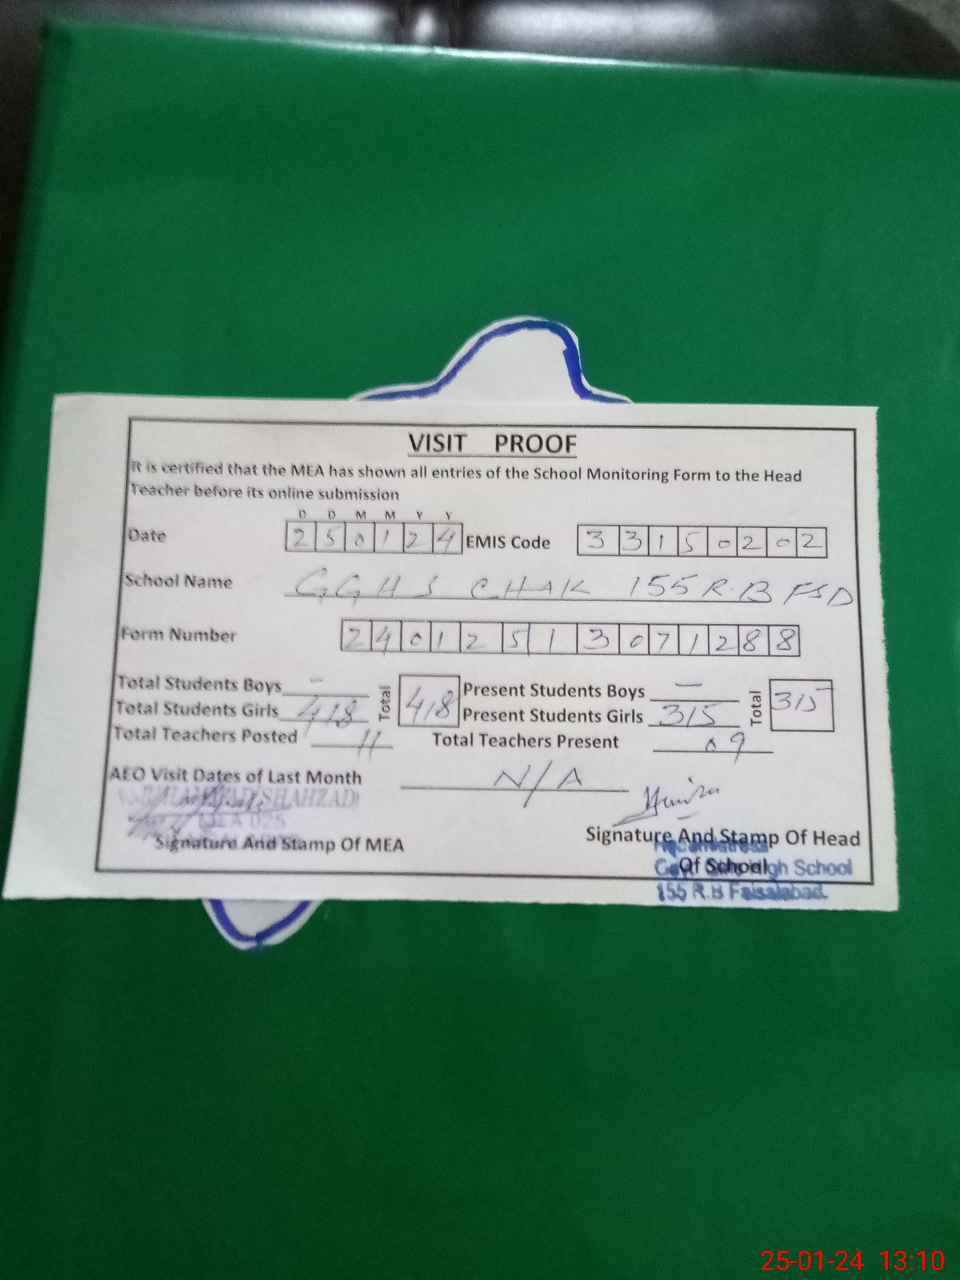 VISIT PROOF
It is certified that the MEA has shown all entries of the School Monitoring Form to the Head
Teacher before its online submission
D D M M Y Y
Date 2 5 0 1 2 4 EMIS Code 3 3 1 5 0 2 0 2
School Name GGHS CHAK 155 R.B FSD
Form Number 2 4 0 1 2 5 1 3 0 7 1 2 8 8
Total Students Boys - Total 418 Present Students Boys - Total 315
Total Students Girls 418 Present Students Girls 315
Total Teachers Posted 11 Total Teachers Present 09
AEO Visit Dates of Last Month N/A
SHAHZAD
Signature And Stamp Of MEA
Signature And Stamp Of Head
Of School
High School
155 R.B Faisalabad.
25-01-24 13:10